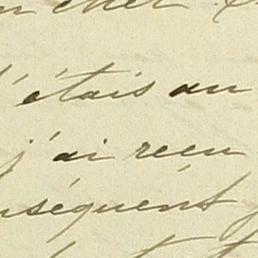 cher
j'étais au
j'ai recu
nséquent